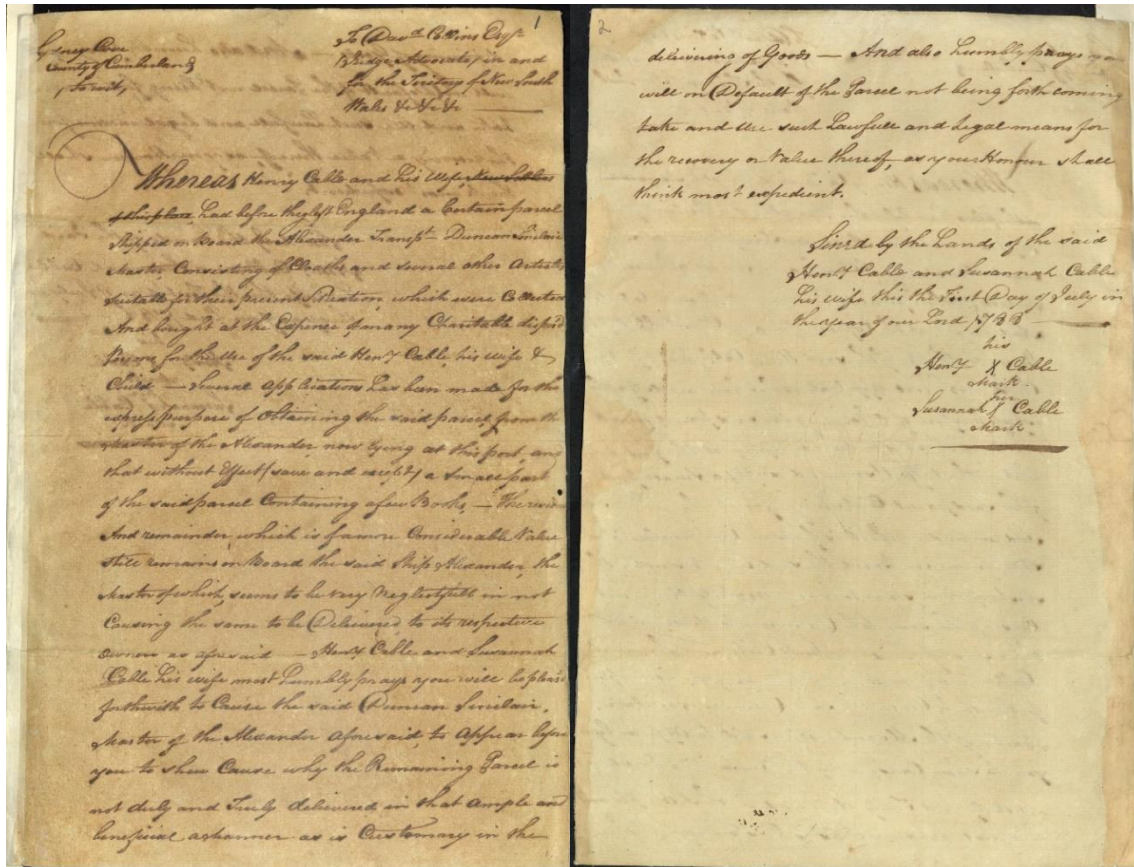 1
Sydney Cove
County of Cumberland
to wit,
To David Collins Esqr
Judge Advocate, in and
for the Territory of New South
Wales &c &c &c
Whereas Henry Cable and his Wife, New Settlers
of this place, had before they left England a Certain parcel
Shipped on Board the Alexander Transpt Duncan Sinclair
Master Consisting of Cloaths and several other Articles
suitable for their present Situation, which were Collected
And bought at the Expence of many Charitable dispos'd
Persons for the Use of the said Henry Cable, his Wife &
Child — Several Applications has been made for the
express purpose of obtaining the said parcel, from the
Master of the Alexander now lying at this port, and
that without Effect (save and except) a small part
of the said parcel Containing a few Books, — the
And remainder, which is of a more Considerable Value
still remains on Board the said Ship Alexander, the
Master of which, seems to be very Neglectfull in not
Causing the same to be Delivered, to its respective
owners as aforesaid — Henry Cable and Susannah
Cable his wife most humbly prays you will be pleas'd
forthwith to Cause the said Duncan Sinclair,
Master of the Alexander aforesaid, to Appear before
you to shew Cause why the Remaining Parcel is
not duly and Truly delivered in that ample and
beneficial a manner as is Customary in the
2
delivering of Goods — And also humbly prays you
will on Default of the Parcel not being forth coming
take and Use such Lawfull and Legal means for
the recovery or Value thereof, as your Honour shall
think most expedient.
Sin'd by the Hands of the said
Henry Cable and Susannah Cable
his wife this the First Day of July in
the year of our Lord 1788
his
Henry X Cable
Mark
her
Susannah Cable
Mark